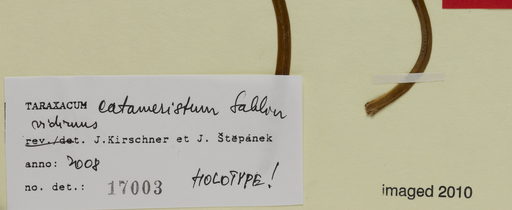 TARAXACUM catameristum Sahlin
vidimus
rev./det. J.Kirschner et J. Štěpánek
anno: 2008
HOLOTYPE!
no. det.: 17003
imaged 2010